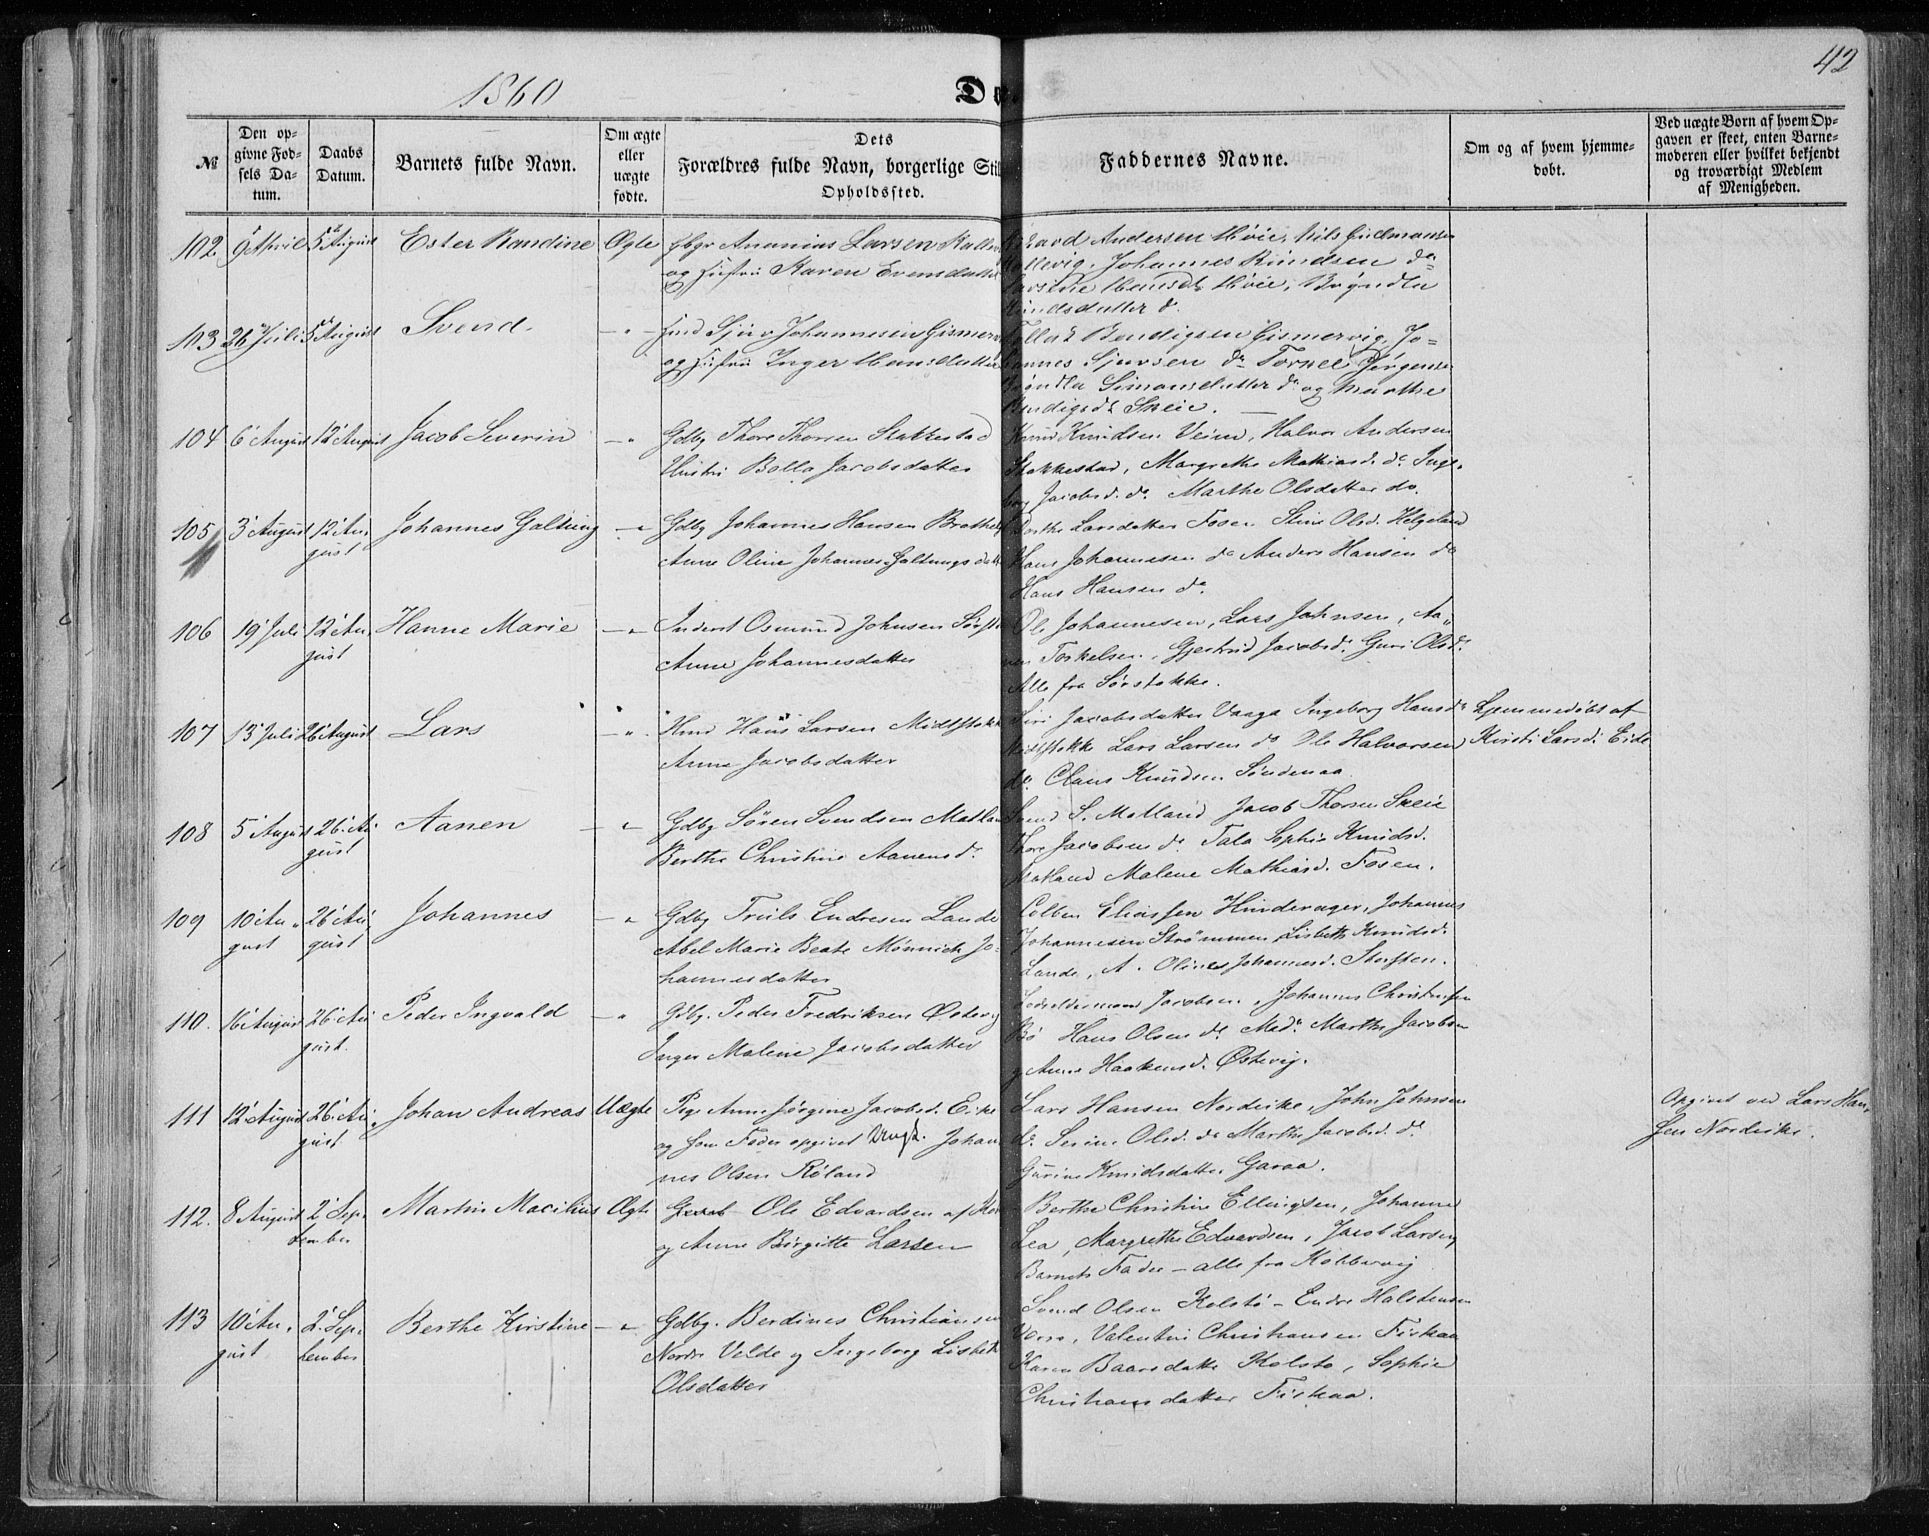 42
1860
Da
№
Den op-
givne Fød-
sels Da-
tum.
Daabs
Datum.
Barnets fulde Navn.
Om ægte
eller
uægte
fødte.
Dets
Forældres fulde Navn, borgerlige Stil
Opholdssted.
Faddernes Navne.
Om og af hvem hjemme-
døbt.
Ved uægte Børn af hvem Op-
gaven er skeet, enten Barne-
moderen eller hvilket bekjendt
og troværdigt Medlem
af Menigheden.
102 9 April 5 August Ester Randine Ægte Gbgr Ananias Larsen
og Hustru Karen Evensdatter
Andersen Høie, Nils Gudmunsen
Johannes Knudsen do
Høie, Brøndla
Knudsdatter do
103 26 Juli 5 August Svend - " - Sjur Johannesen Gismer
og Hustru Inger Hansdatter
Bendigsen Gismervig, Jo-
hannes Sjursen do Tornel Jørgensen
Brøndla Simonsdatter do og Marthe
Bendigsdt Skeie.
104 6 August 12 August Jacob Severin - " Gdbg Thore Thorsen Stakkestad
Hustru Bolla Jacobsdatter
Knud Knudsen Veim, Halvor Andersen
Stakkestad, Margrethe Mathiasd. do Inge-
borg Jacobsd. do Marthe Olsdatter do.
105 3 August 12 Au-
gust Johannes Galtung - " Gdbg Johannes Hansen
Anne Oline Johannes Galtungs datt
Dorthe Larsdatter Fosen Stine Olsd. Helgeland
Hans Johannesen do Anders Hansen do
Hans Hansen do
106 19 Juli 12 Au-
gust Hanne Marie - " Inderst Osmund Johnsen Sørst
Anne Johannesdatter
Ole Johannesen, Lars Johnsen, Aa-
nen Torkelsen, Gjertrud Jacobsd. Guri Olsd.
Alle fra Sørstokke.
107 13 Juli 26 August Lars - " Hans Larsen Midtstokk
Anne Jacobsdatter
Siri Jacobsdatter Vaaga Ingeborg Hansd.
Midtstokke Lars Larsen do Ole Halvorsen
do Claus Knudsen Søndenaa.
hjemmedøbt af
Kirsti Larsd. Eide
108 5 August 26 Au-
gust Aanen - " Gdbg Søren Svendsen Matlan
Berthe Christine Aanensd.
Svend S. Matland Jacob Thorsen Skeie
Thore Jacobsen do Tala Sophie Knudsd.
Matland Malene Mathiasd. Fosen.
109 10 Au-
gust 26 Au-
gust Johannes - " Gdbg Truls Endresen Lande
Abel Marie Beate Mønnich Jo-
hannesdatter
Colben Eliassen Hinderager, Johannes
Johannesen Strømmen, Lisbeth Knudsd.
Lande, A. Oline Johannesd.
110. 16 August 26 Au-
gust. Peder Ingvald - " Gdbg. Peder Fredriksen Østevig
Inger Malene Jacobsdatter
Jacobsen, Johannes Christensen
Bø Hans Olsen do Marthe Jacobsen
og Anne Haakensd. Østevig.
111 12 August 26 Au-
gust Johan Andreas Uægte Pige Anne Jørgine Jacobsd. Eike
og som Fader opgivet Ungk. Johan
nes Olsen Røland
Lars Hansen Nordeike, John Johnsen
do Serine Olsd. do Marthe Jacobsd. do
Gurine Knudsdatter Garaa.
Opgivet ved Lars Han-
sen Nordeike.
112. 8 August 2 Sep-
tember Martin Macilius Ægte Ole Edvardsen af
og Anne Birgitte Larsen
Berthe Christine Ellingsen, Johanne
Lea, Margrethe Edvardsen, Jacob Larsen
Barnets Fader - alle fra Kobbervig
113 10 Au-
gust 2 Sep-
tember Berthe Kirstine - " Gdbg. Berdines Christiansen
Nordre Velde og Ingeborg Lisbeth
Olsdatter
Svend Olsen Kolstø - Endre Halstensen
Vorre, Valentin Christiansen Fiskaa
Karen Baarsdatter Kolstø, Sophie
Christiansdatter Fiskaa.